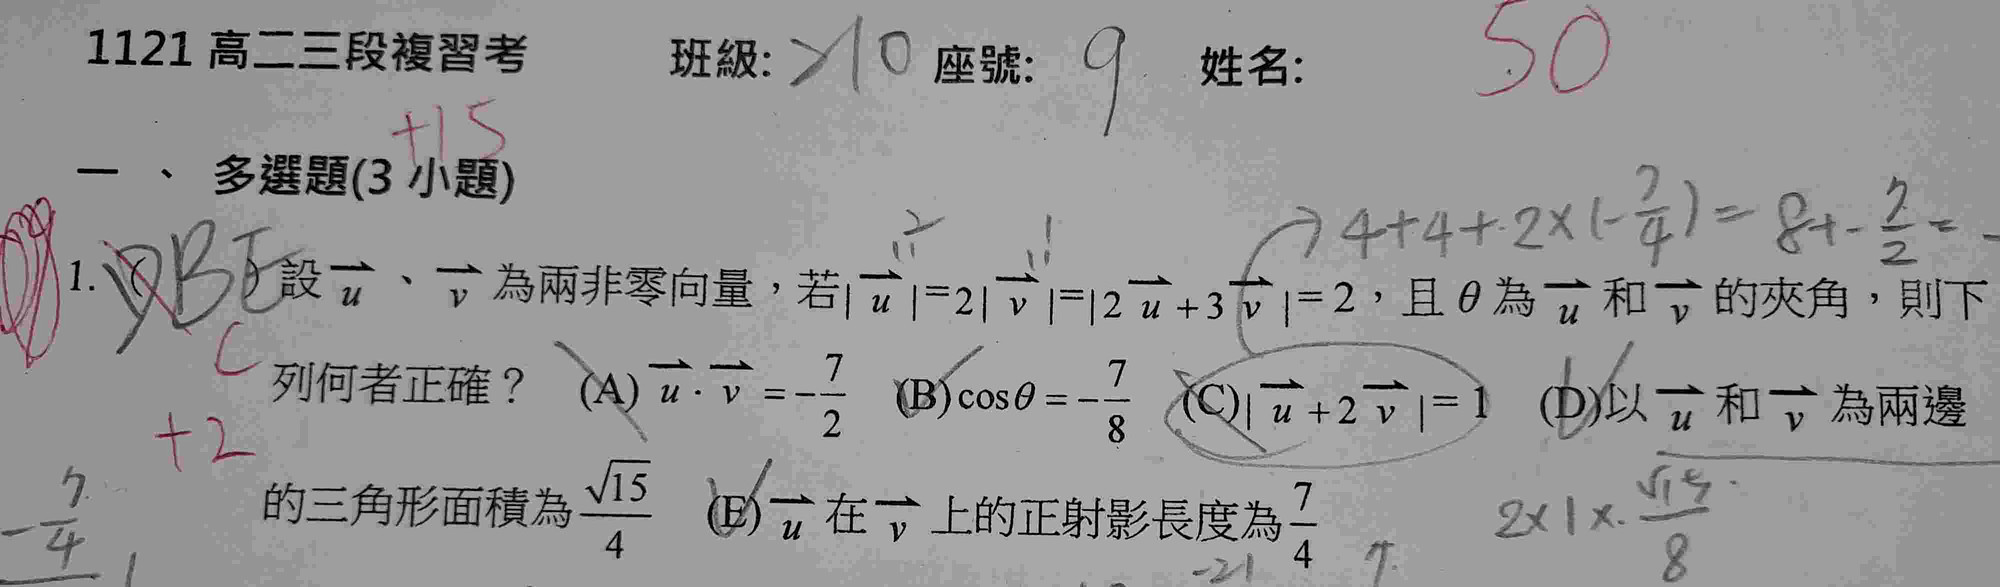 1121 高二三段複習考 班級: 210 座號: 9 姓名: 50
+15
一、 多選題(3 小題)
→ 4+4+2×(-7/4) = 8+-7/2 =
2 1
1. BE 設 u⃗ 、 v⃗ 為兩非零向量，若| u⃗ |=2| v⃗ |=|2 u⃗ +3 v⃗ |=2，且 θ 為 u⃗ 和 v⃗ 的夾角，則下
C
列何者正確？ (A) u⃗ · v⃗ =-7/2 (B)cosθ=-7/8 (C)| u⃗ +2 v⃗ |=1 (D)以 u⃗ 和 v⃗ 為兩邊
+2
的三角形面積為 √15/4 (E) u⃗ 在 v⃗ 上的正射影長度為 7/4
-7/4
2×1×√15/8
-21 7